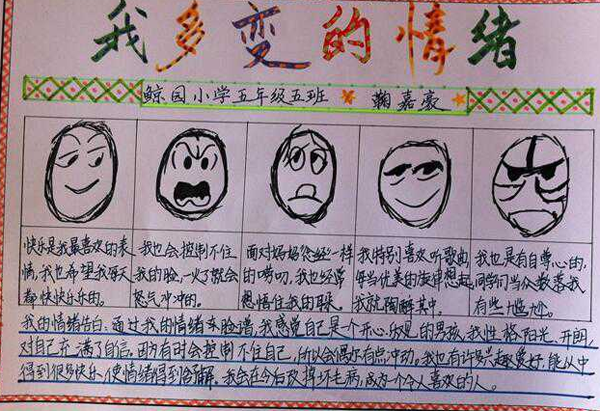 我多变的情绪
鲸园小学五年级五班 鞠嘉豪
快乐是我最喜欢的表
情，我也希望我每天
都快快乐乐的。
我也会控制不住
我的脸，一火了就会
怒气冲冲的。
面对妈妈念经一样
的唠叨，我也经常
想捂住我的耳朵。
我特别喜欢听歌曲，
每当优美的旋律想起，
我就陶醉其中。
我也是有自尊心的，
同学们当众数落我
有些尴尬。
我的情绪告白：通过我的情绪来脸谱，我感觉自己是一个开心乐观的男孩，我性格阳光、开朗，
对自己充满了自信。因为有时会控制不住自己，所以会偶尔有点冲动。我也有许多兴趣爱好，能从中
得到很多快乐，使情绪得到缓解。我会在今后改掉坏毛病，成为一个令人喜欢的人。